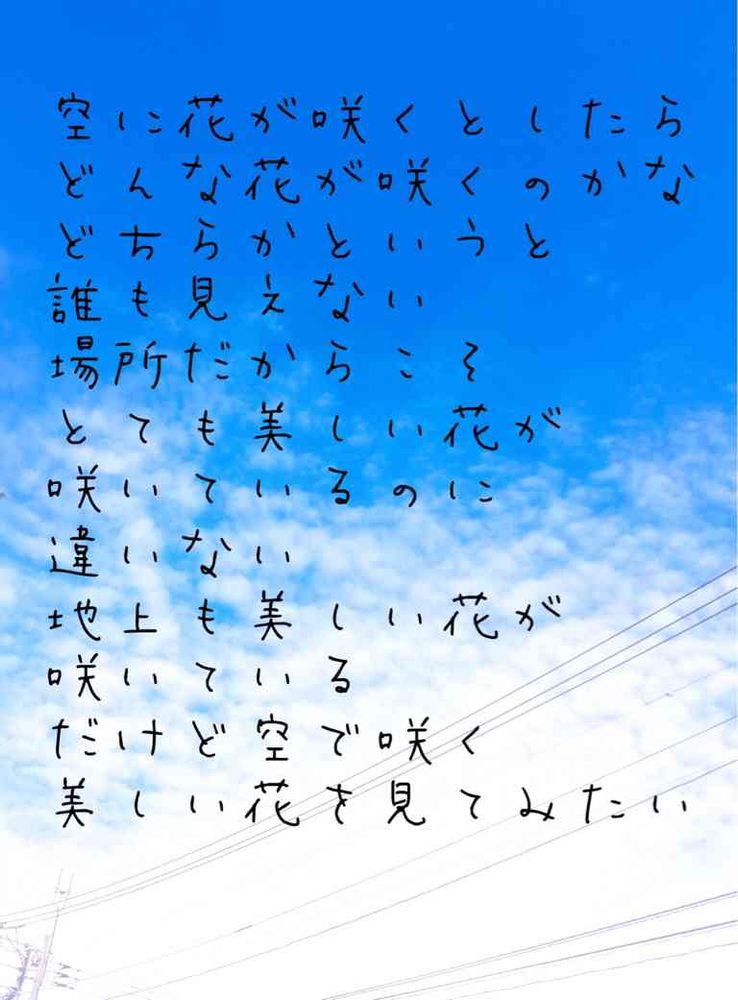 空に花が咲くとしたら
どんな花が咲くのかな
どちらかというと
誰も見えない
場所だからこそ
とても美しい花が
咲いているのに
違いない
地上も美しい花が
咲いている
だけど空で咲く
美しい花を見てみたい